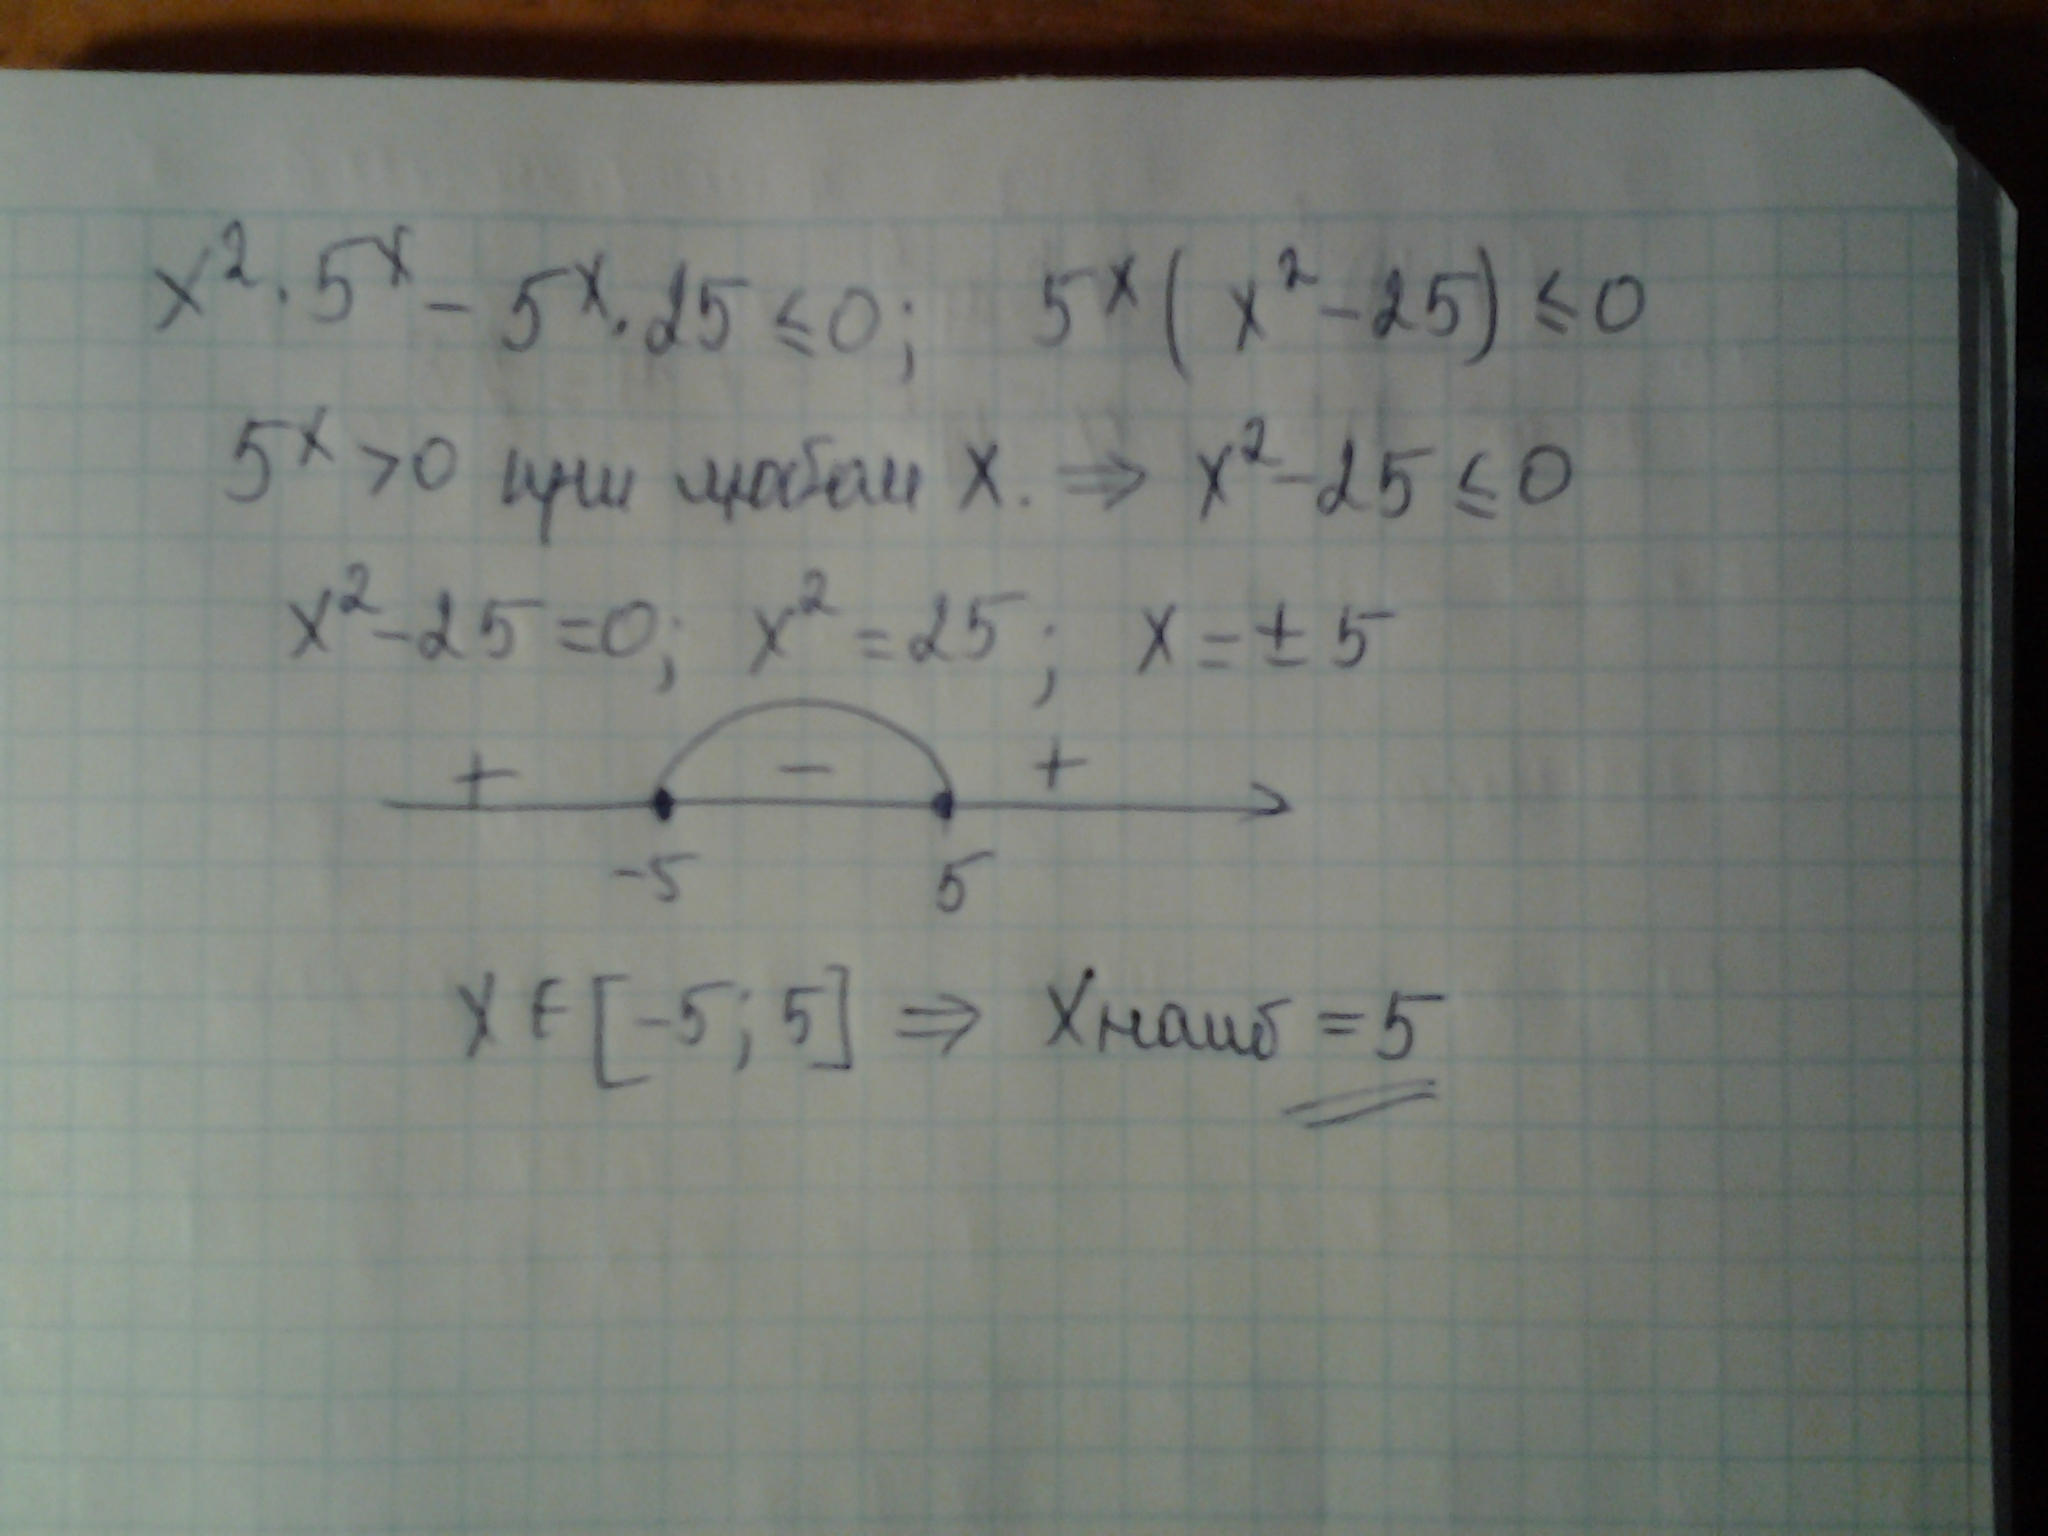 x² · 5ˣ - 5ˣ · 25 ≤ 0; 5ˣ ( x² - 25) ≤ 0
5ˣ > 0 при любом x. ⇒ x² - 25 ≤ 0
x² - 25 = 0; x² = 25; x = ± 5
+ - +
-5 5
x ∈ [-5; 5] ⇒ xнаиб = 5